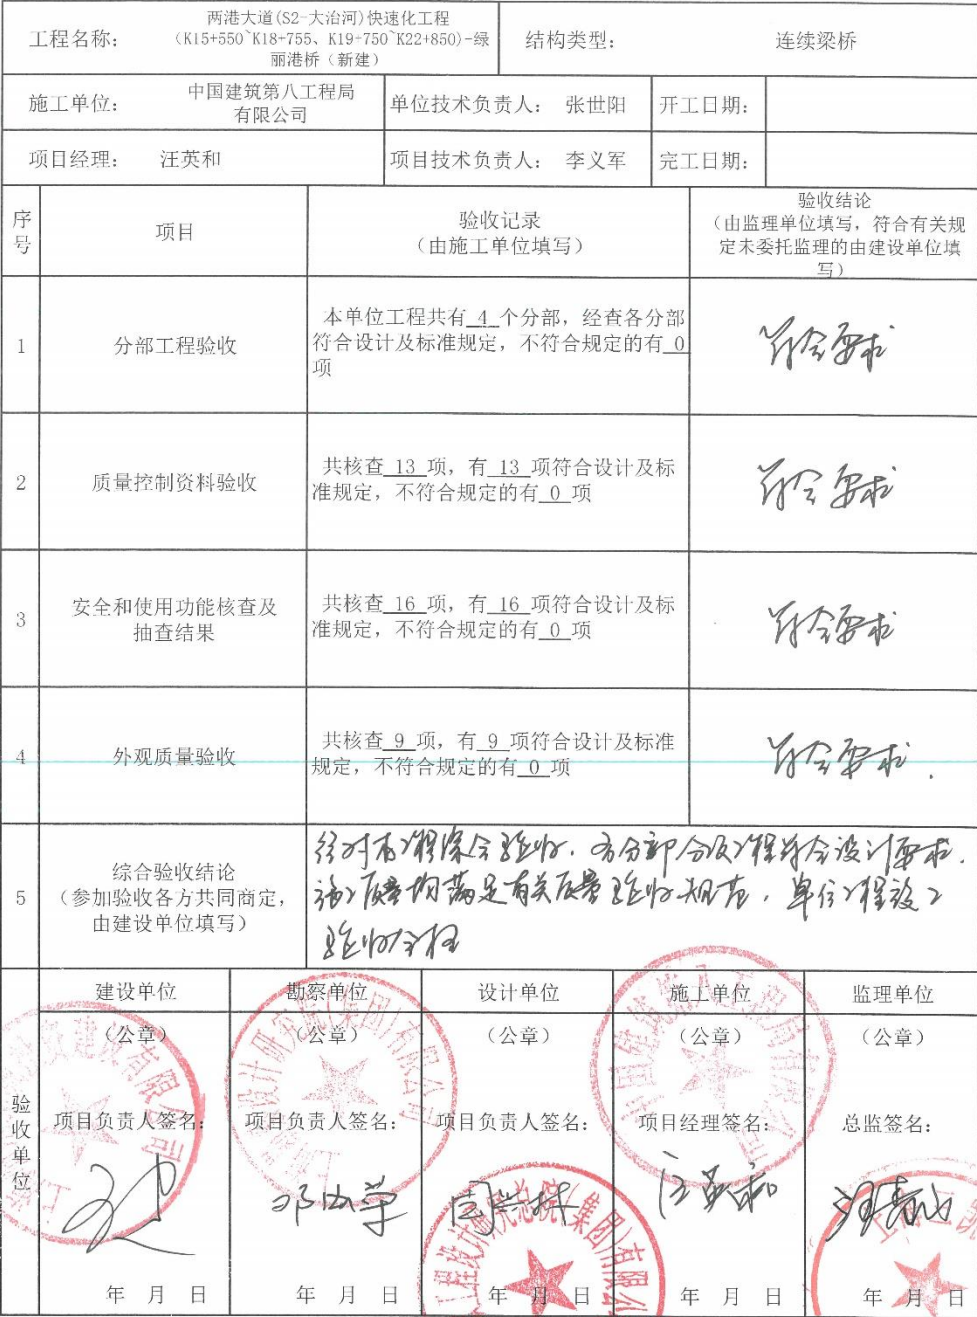 工程名称:
两港大道(S2-大治河)快速化工程
(K15+550~K18+755、K19+750~K22+850)-绿
丽港桥（新建）
结构类型:
连续梁桥
施工单位:
中国建筑第八工程局
有限公司
单位技术负责人: 张世阳
开工日期:
项目经理: 汪英和
项目技术负责人: 李义军
完工日期:
序
号
项目
验收记录
（由施工单位填写）
验收结论
（由监理单位填写，符合有关规
定未委托监理的由建设单位填
写）
1
分部工程验收
本单位工程共有 4 个分部，经查各分部
符合设计及标准规定，不符合规定的有 0
项
符合要求
2
质量控制资料验收
共核查 13 项，有 13 项符合设计及标
准规定，不符合规定的有 0 项
符合要求
3
安全和使用功能核查及
抽查结果
共核查 16 项，有 16 项符合设计及标
准规定，不符合规定的有 0 项
符合要求
4
外观质量验收
共核查 9 项，有 9 项符合设计及标准
规定，不符合规定的有 0 项
符合要求.
5
综合验收结论
（参加验收各方共同商定，
由建设单位填写）
经对本工程综合验收，各分部分项工程符合设计要求，
施工质量均满足有关质量验收规范，单位工程竣工
验收合格
验
收
单
位
建设单位
（公章）
项目负责人签名:
年 月 日
勘察单位
（公章）
项目负责人签名:
年 月 日
设计单位
（公章）
项目负责人签名:
年 月 日
施工单位
（公章）
项目经理签名:
汪英和
年 月 日
监理单位
（公章）
总监签名:
年 月 日